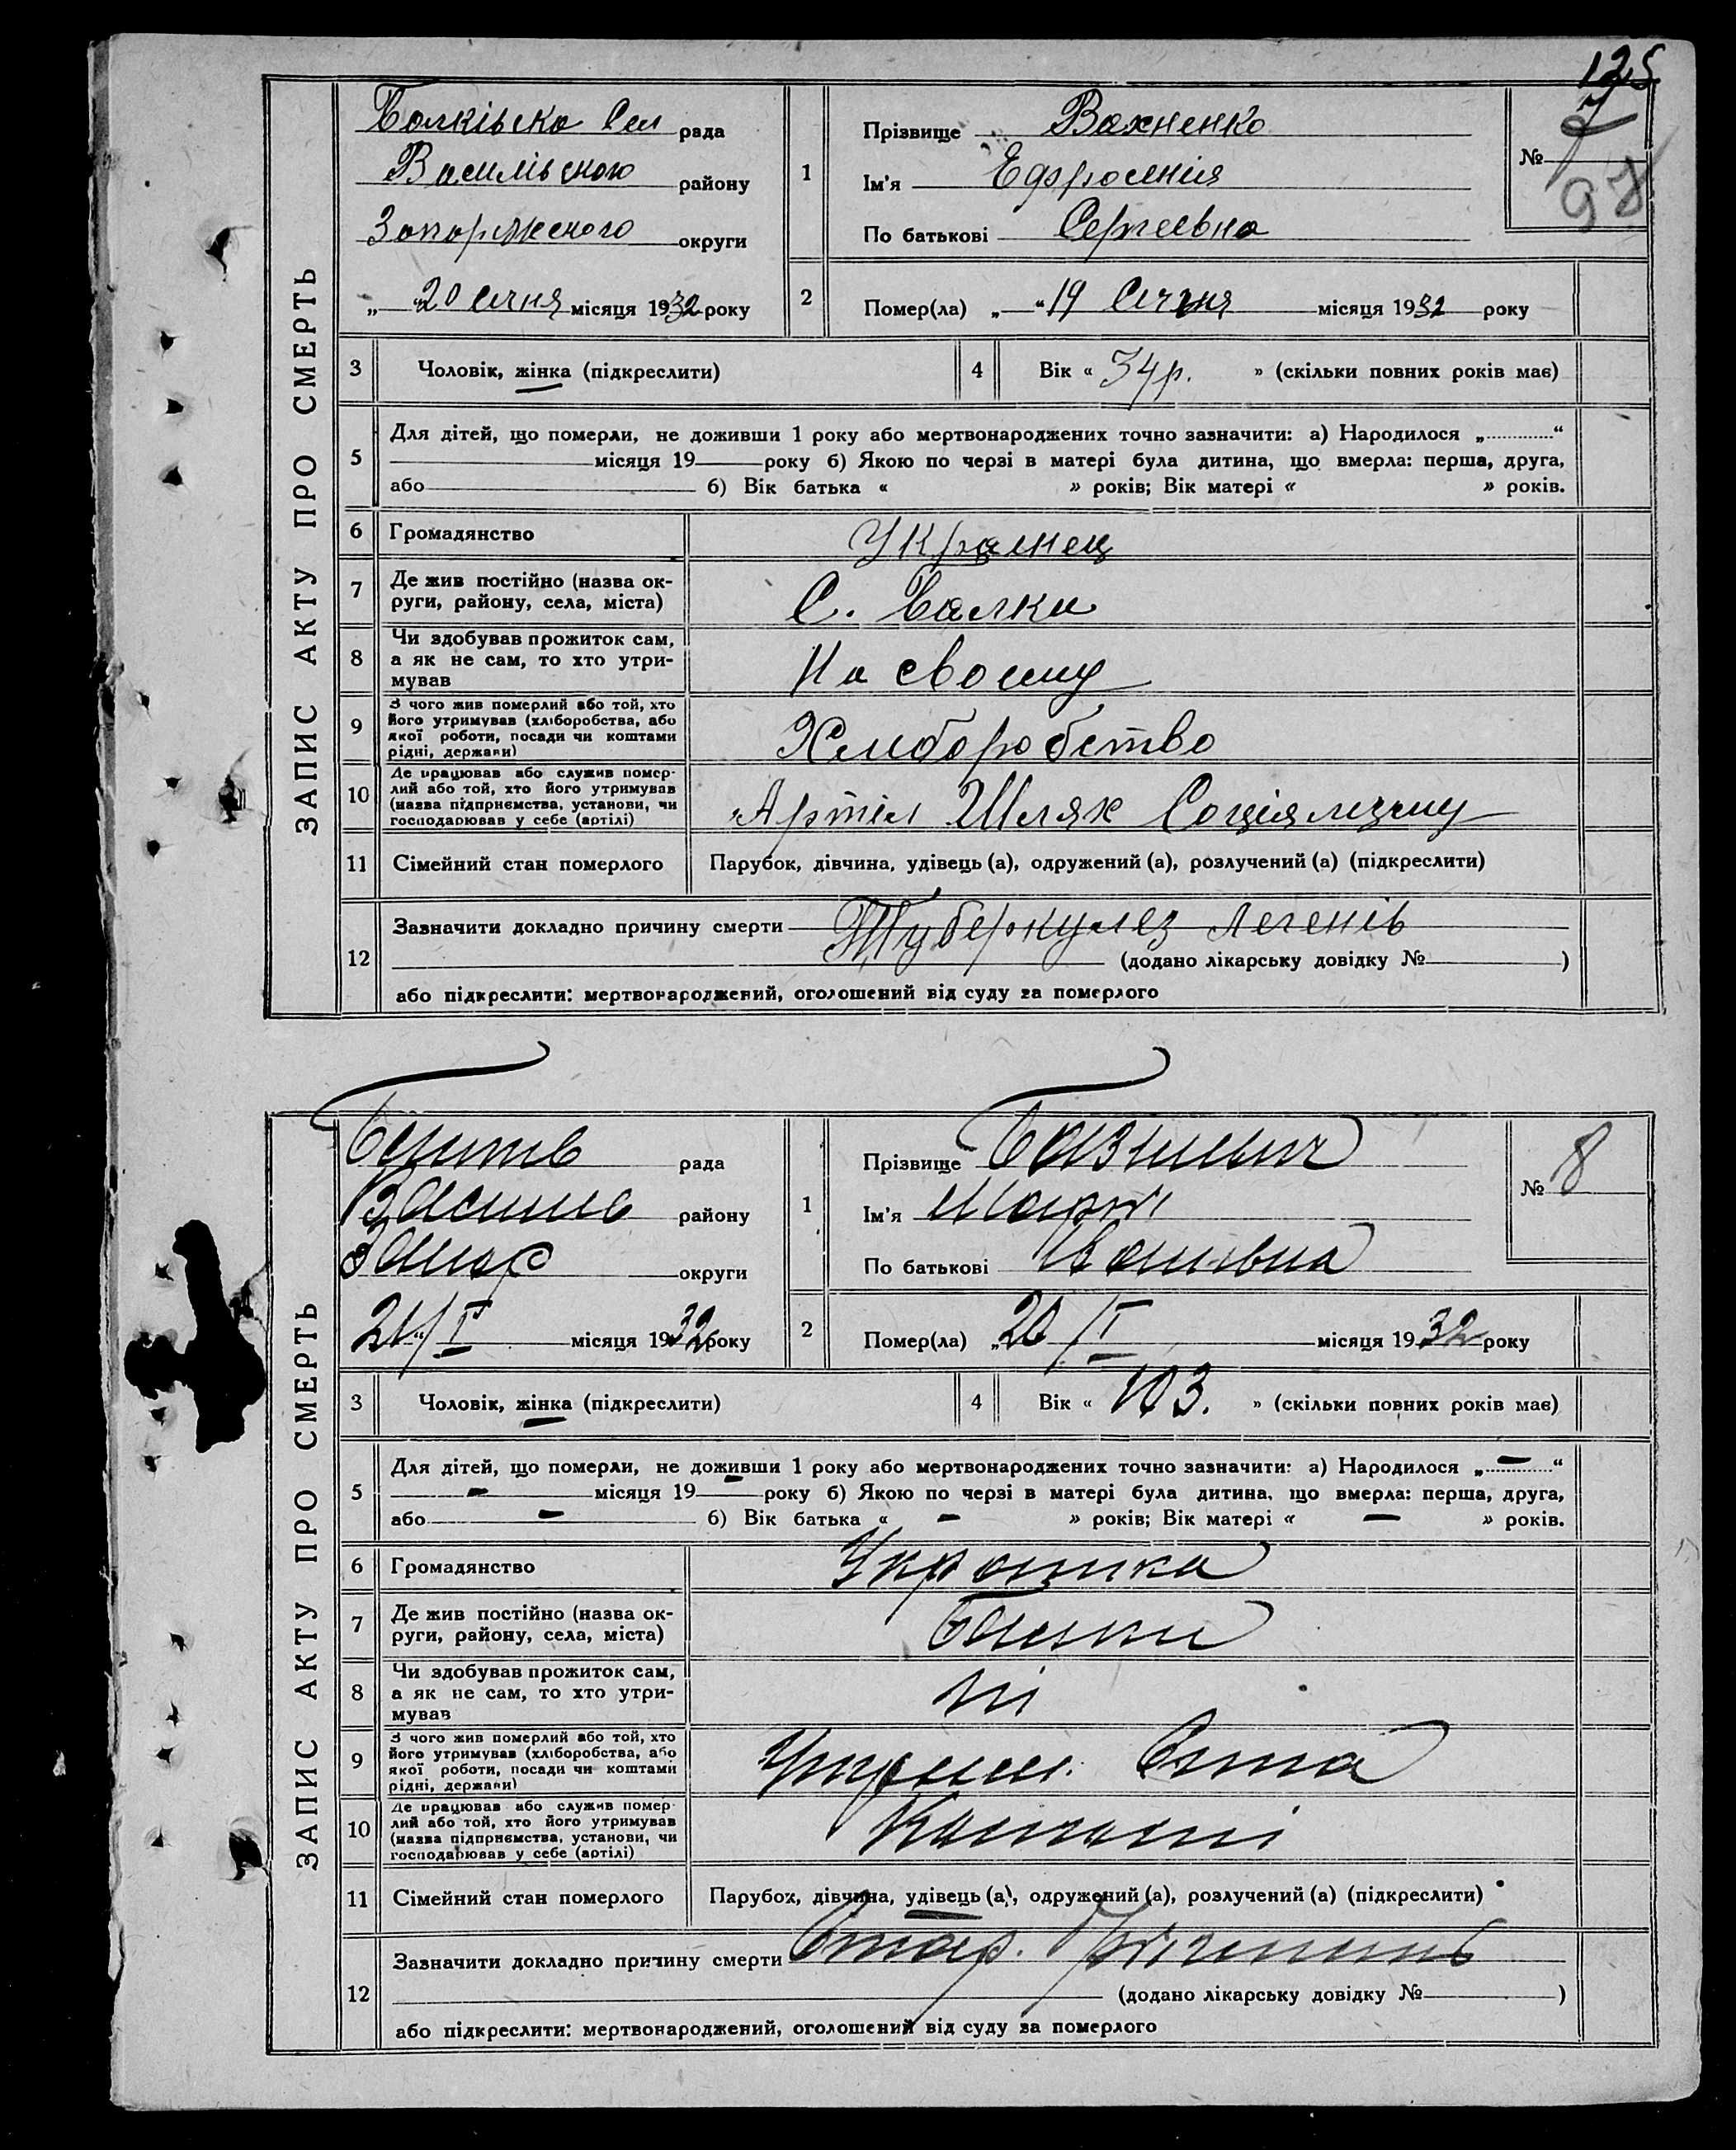 125
ЗАПИС АКТУ ПРО СМЕРТЬ
Балківска Сел рада
Василівского району
Запорижского округи
„ "20 Січня місяця 1932 року
1
Прізвище Вахненко
Ім'я Ефросинія
По батькові Сергеевна
№ 7
97
2
Помер(ла) „ "19 Січня місяця 1932 року
3 Чоловік, жінка (підкреслити)
4 Вік « 34 р. » (скільки повних років має)
5
Для дітей, що померли, не доживши 1 року або мертвонароджених точно зазначити: а) Народилося „ “
місяця 19 року б) Якою по черзі в матері була дитина, що вмерла: перша, друга,
або 6) Вік батька « » років; Вік матері « » років.
6 Громадянство Украинец
7 Де жив постійно (назва ок-
руги, району, села, міста) С. Балки
8 Чи здобував прожиток сам,
а як не сам, то хто утри-
мував На своему
9 З чого жив померлий або той, хто
його утримував (хліборобства, або
якої роботи, посади чи коштами
рідні, держави) Хлиборобство
10 Де працював або служив помер-
лий або той, хто його утримував
(назва підприємства, установи, чи
господарював у себе (артілі) Артіл Шлях Соціялизму
11 Сімейний стан померлого Парубок, дівчина, удівець (а), одружений (а), розлучений (а) (підкреслити)
12
Зазначити докладно причину смерти Туберкулез легенів
(додано лікарську довідку № )
або підкреслити: мертвонароджений, оголошений від суду за померлого
ЗАПИС АКТУ ПРО СМЕРТЬ
рада
Василів району
Запор округи
21/I місяця 1932 року
1
Прізвище
Ім'я Марія
По батькові Івановна
№ 8
2
Помер(ла) „20/I місяця 1932 року
3 Чоловік, жінка (підкреслити)
4 Вік « 103. » (скільки повних років має)
5
Для дітей, що померли, не доживши 1 року або мертвонароджених точно зазначити: а) Народилося „ – “
– місяця 19 року б) Якою по черзі в матері була дитина, що вмерла: перша, друга,
або – 6) Вік батька « – » років; Вік матері « – » років.
6 Громадянство Українка
7 Де жив постійно (назва ок-
руги, району, села, міста) Балки
8 Чи здобував прожиток сам,
а як не сам, то хто утри-
мував ні
9 З чого жив померлий або той, хто
його утримував (хліборобства, або
якої роботи, посади чи коштами
рідні, держави)
10 Де працював або служив помер-
лий або той, хто його утримував
(назва підприємства, установи, чи
господарював у себе (артілі)
11 Сімейний стан померлого Парубок, дівчина, удівець (а), одружений (а), розлучений (а) (підкреслити)
12
Зазначити докладно причину смерти Стар.
(додано лікарську довідку № )
або підкреслити: мертвонароджений, оголошений від суду за померлого